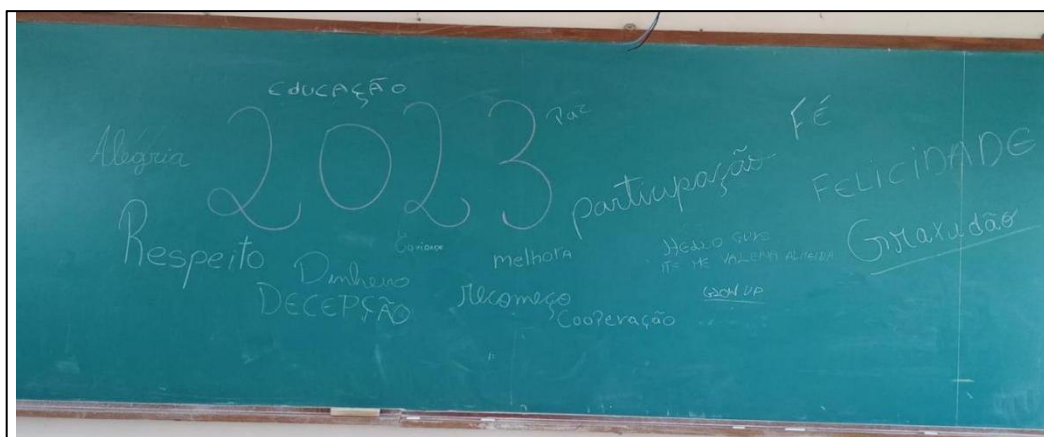 EDUCAÇÃO
Alegria
2023
Paz
FÉ
participação
FELICIDADE
Respeito
melhora
HELLO GUYS
ITS ME VALERIA ALMEIDA
Gratidão
Dinheiro
DECEPÇÃO
recomeço
Cooperação
GROW UP